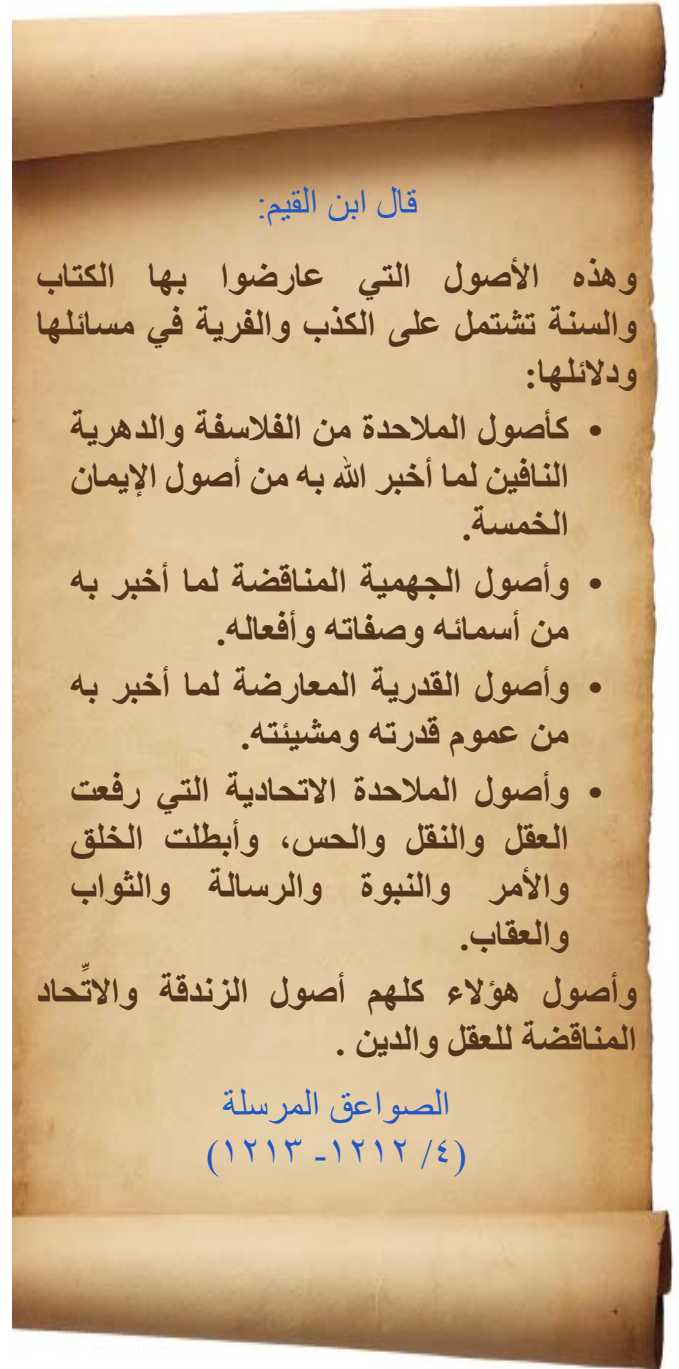 قال ابن القيم:
وهذه الأصول التي عارضوا بها الكتاب
والسنة تشتمل على الكذب والفرية في مسائلها
ودلائلها:
• كأصول الملاحدة من الفلاسفة والدهرية
النافين لما أخبر الله به من أصول الإيمان
الخمسة.
• وأصول الجهمية المناقضة لما أخبر به
من أسمائه وصفاته وأفعاله.
• وأصول القدرية المعارضة لما أخبر به
من عموم قدرته ومشيئته.
• وأصول الملاحدة الاتحادية التي رفعت
العقل والنقل والحس، وأبطلت الخلق
والأمر والنبوة والرسالة والثواب
والعقاب.
وأصول هؤلاء كلهم أصول الزندقة والاتِّحاد
المناقضة للعقل والدين .
الصواعق المرسلة
(٤/ ١٢١٢- ١٢١٣)